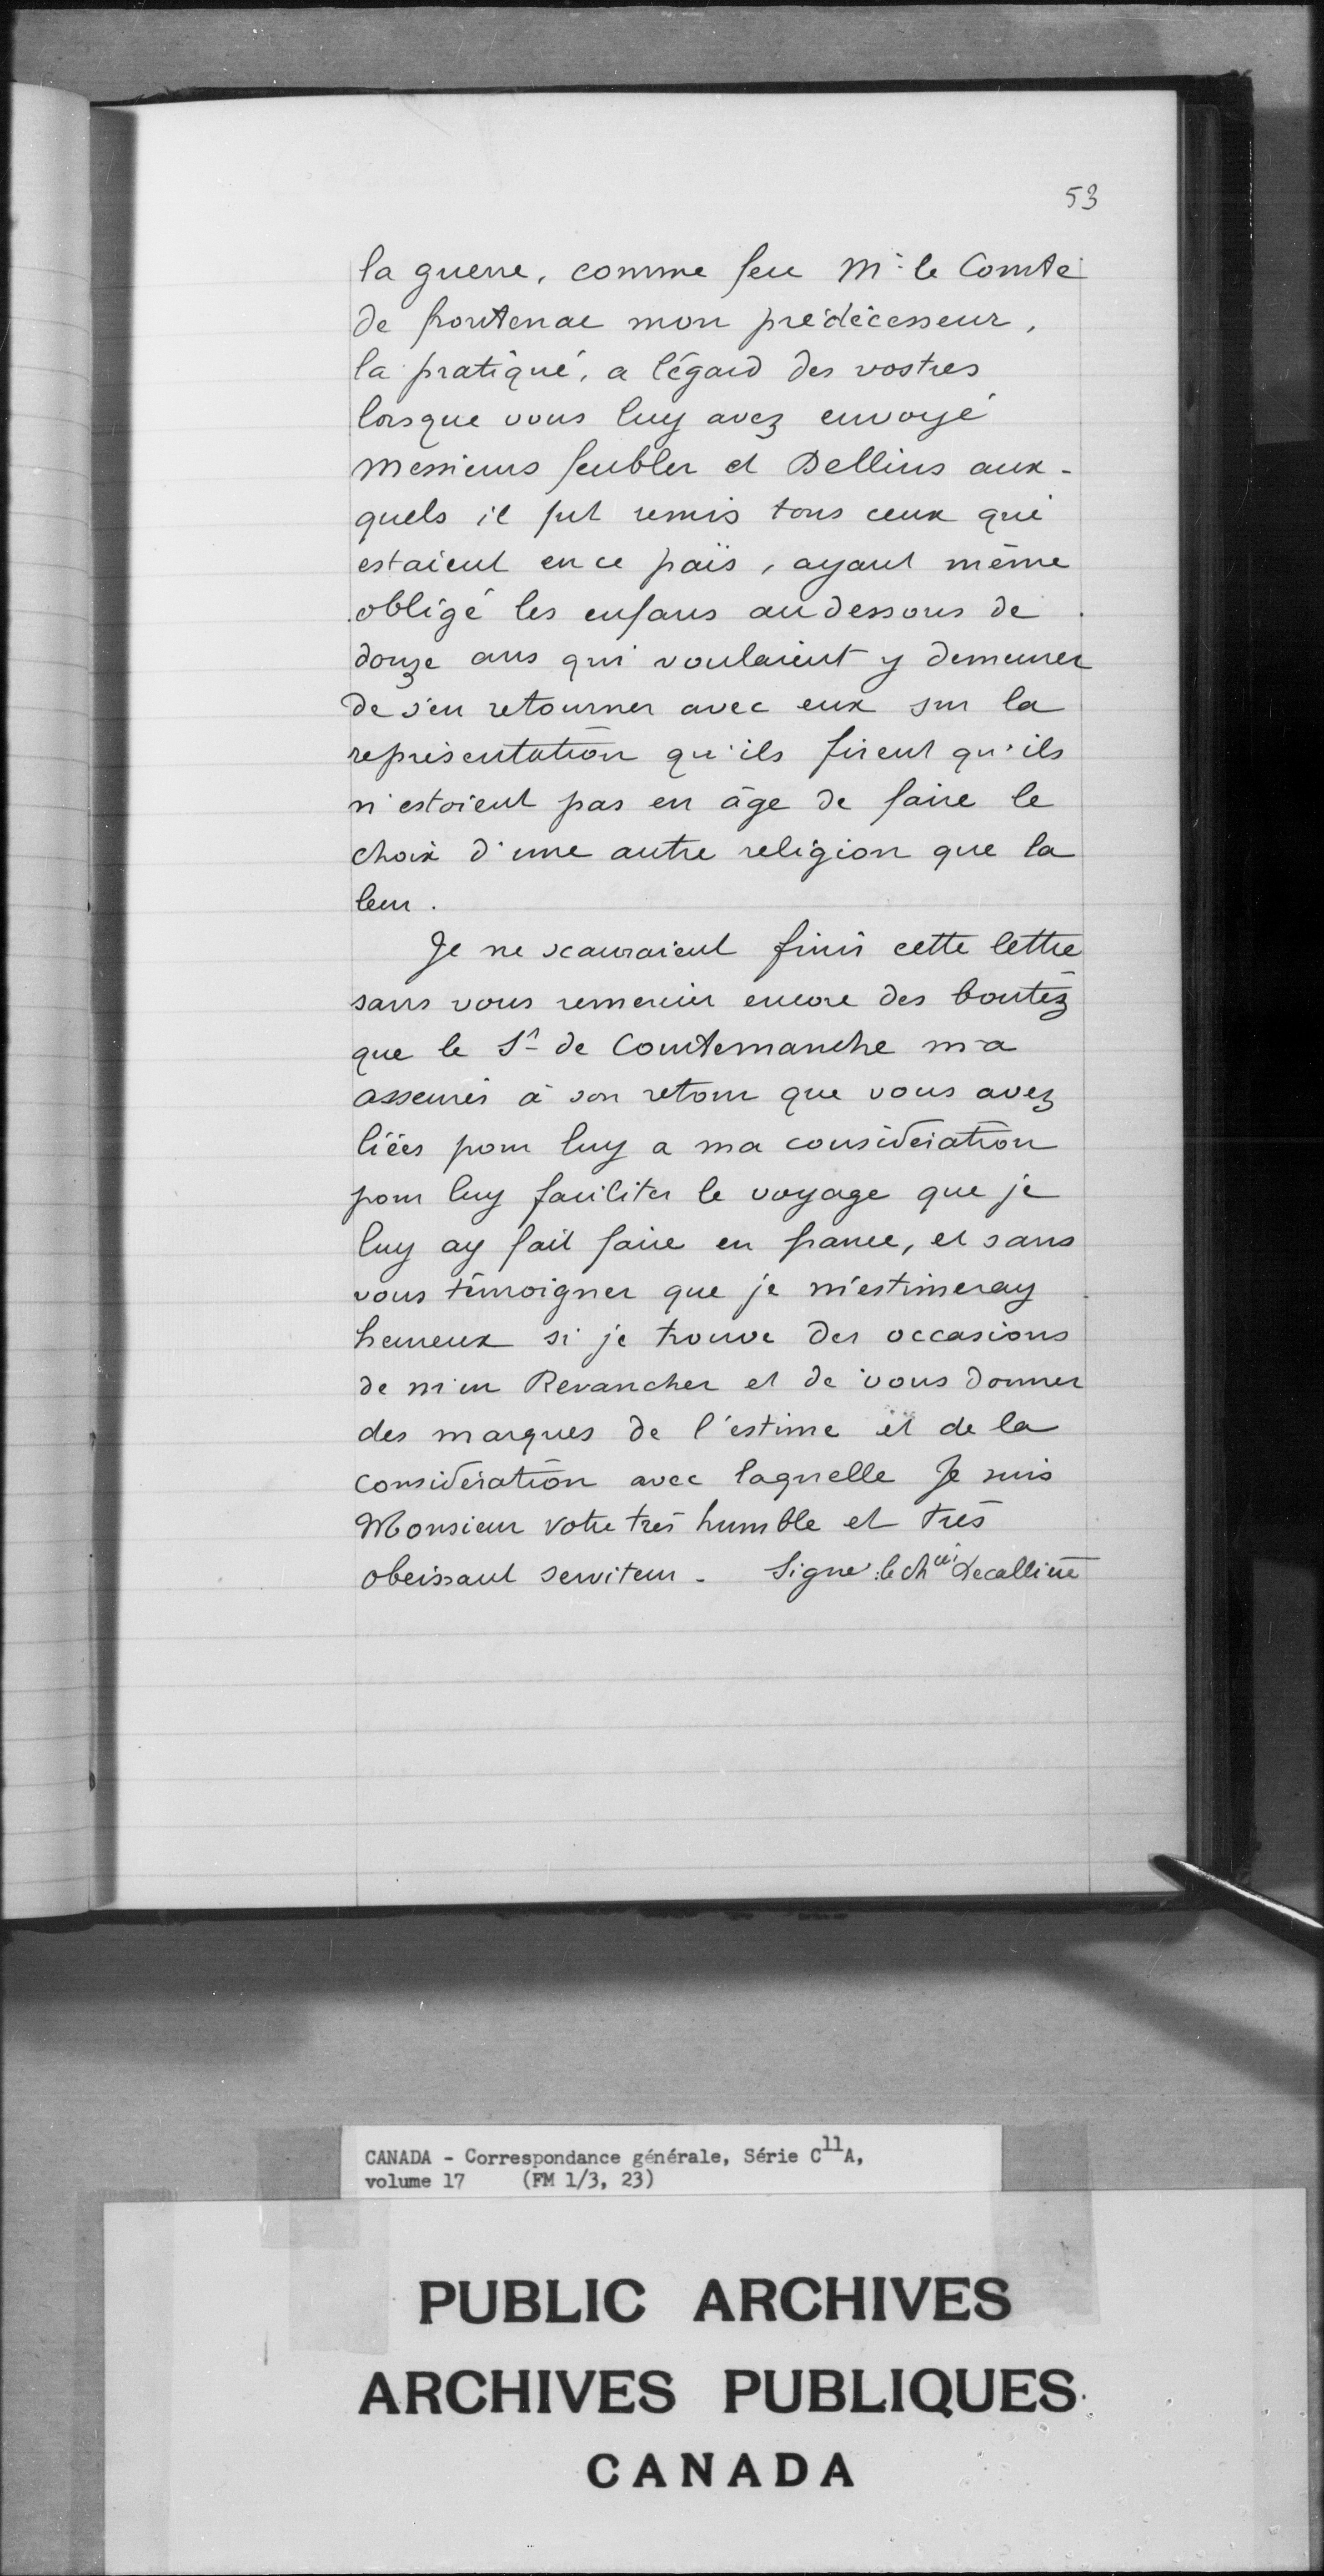 53
la guerre, comme feu Mr le Comte
de frontenac mon prédécesseur,
la pratiqué, a l'égard des vostres
lorsque vous luy avez envoyé
Messieurs feubler et Dellius aux-
quels il fut remis tous ceux qui
estaient en ce païs, ayant même
obligé les enfans audessous de
douze ans qui voulaient y demeurer
de s'en retourner avec eux sur la
représentation qu'ils firent qu'ils
n'estoient pas en âge de faire le
choix d'une autre religion que la
leur.
Je ne scauraient finir cette lettre
sans vous remercier encore des bontéz
que le Sr de Courtemanche m'a
asseurés à son retour que vous avez
liées pour luy a ma considération
pour luy faciliter le voyage que je
luy ay fait faire en france, et sans
vous témoigner que je m'estimeray
heureux si je trouve des occasions
de m'en Revancher et de vous donner
des marques de l'estime et de la
considération avec laquelle Je suis
Monsieur votre très humble et très
obeissant serviteur - Signé: le chler Decallière
CANADA - Correspondance générale, Série C11A,
volume 17 (FM 1/3, 23)
PUBLIC ARCHIVES
ARCHIVES PUBLIQUES
CANADA